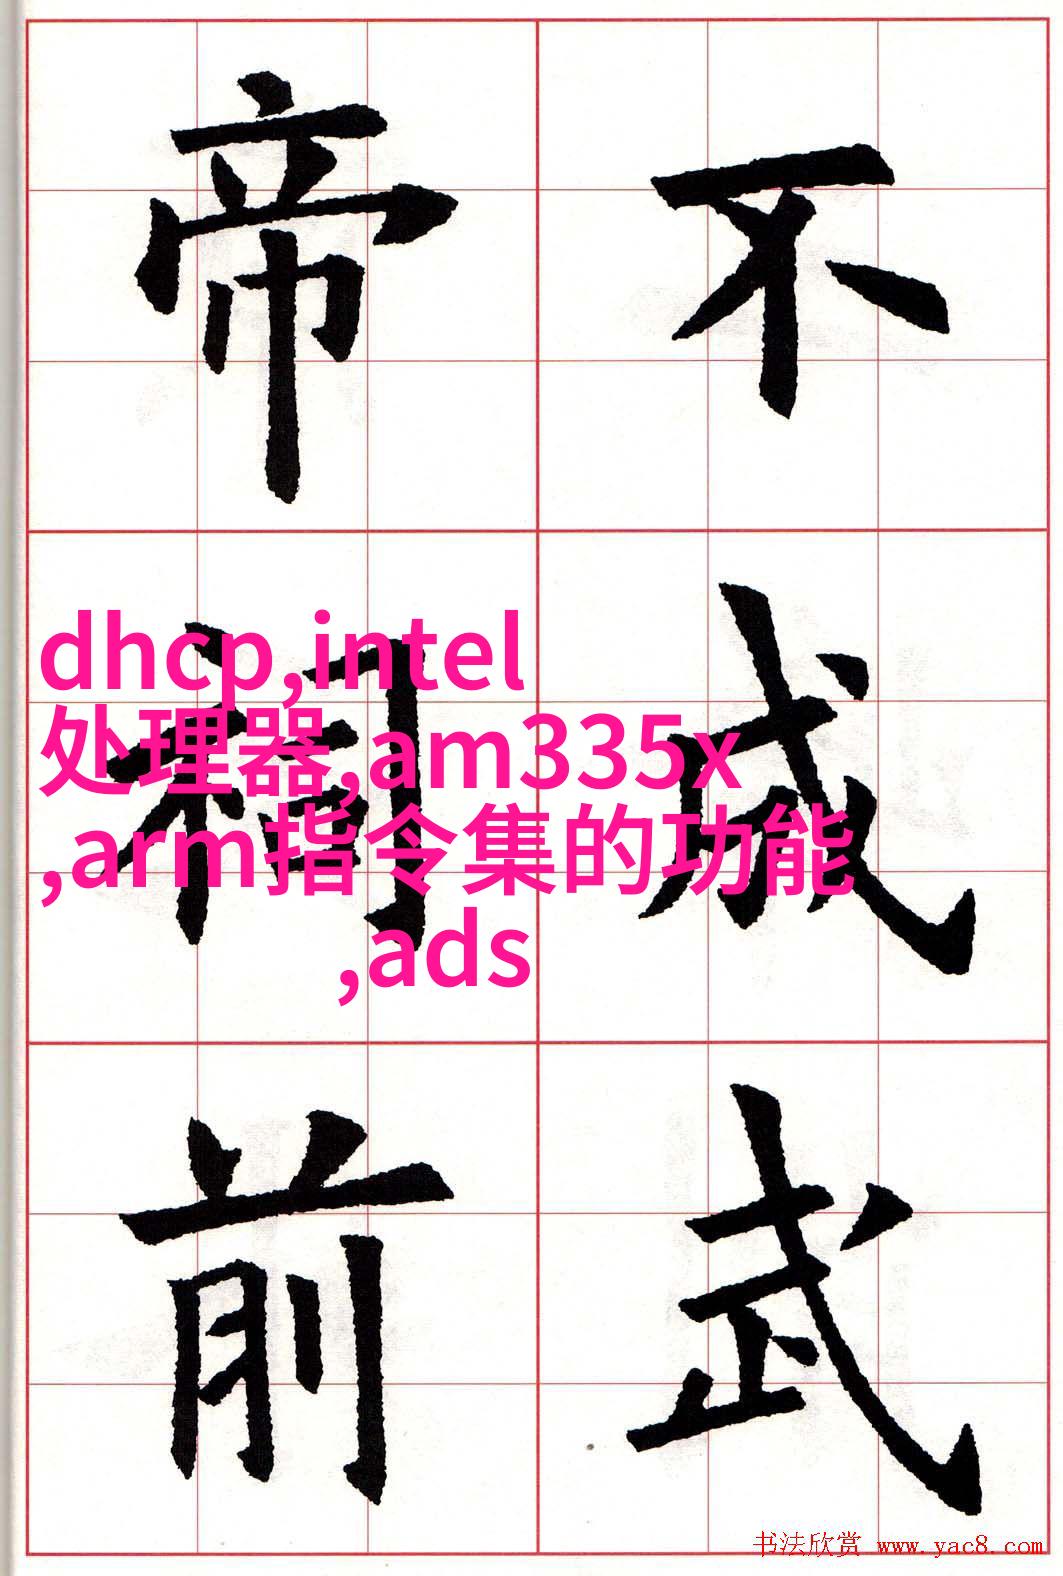 不成武
帝祠前
dhcp,intel
处理器,am335x
,arm指令集的功能
,ads
书法欣赏 www.yac8.com